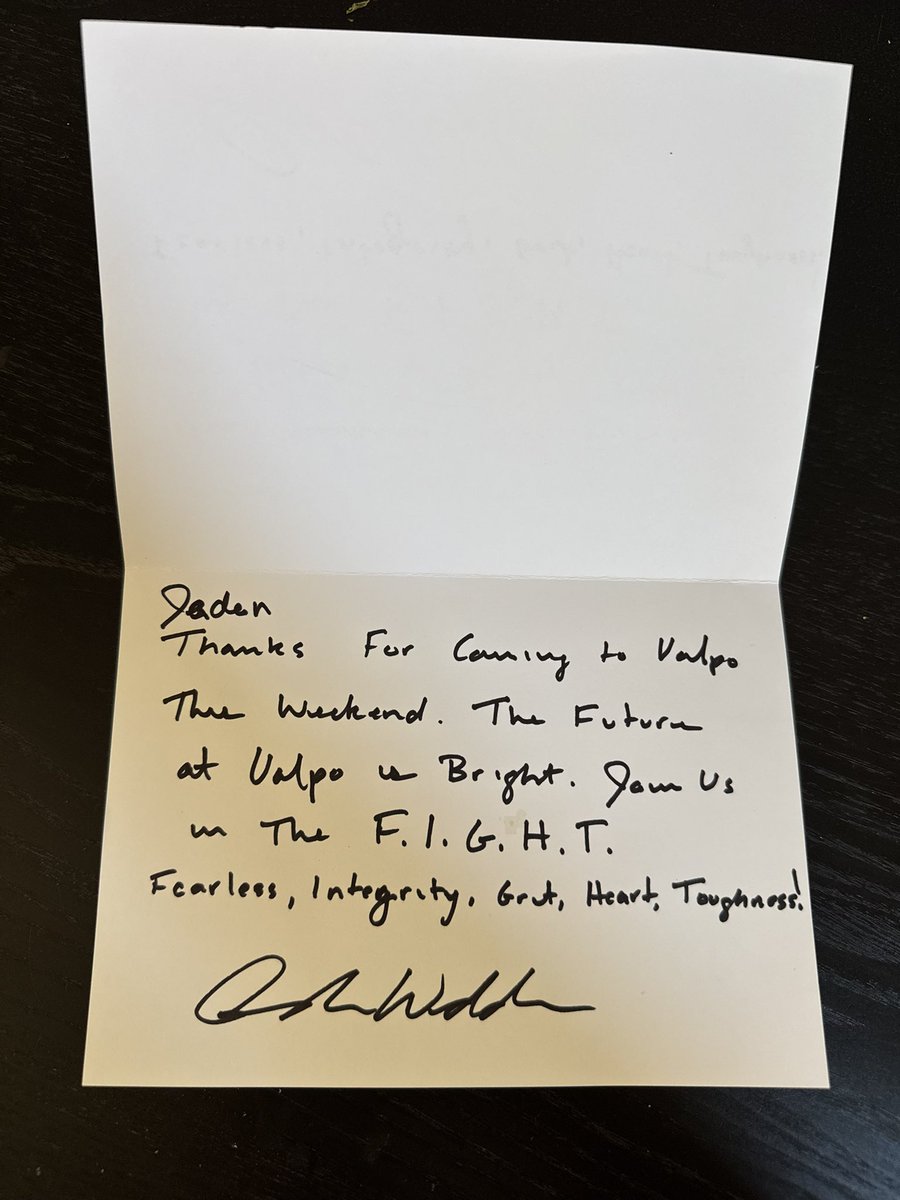 Jaden
Thanks For Coming to Valpo
This Weekend. The Future
at Valpo is Bright. Join Us
in The F.I.G.H.T.
Fearless, Integrity, Grit, Heart, Toughness!